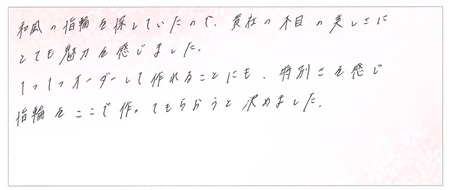 和風の指輪を探していたので、貴社の木目の美しさに
とても魅力を感じました。
1つ1つオーダーして作れることにも、特別さを感じ
指輪をここで作ってもらおうと決めました。